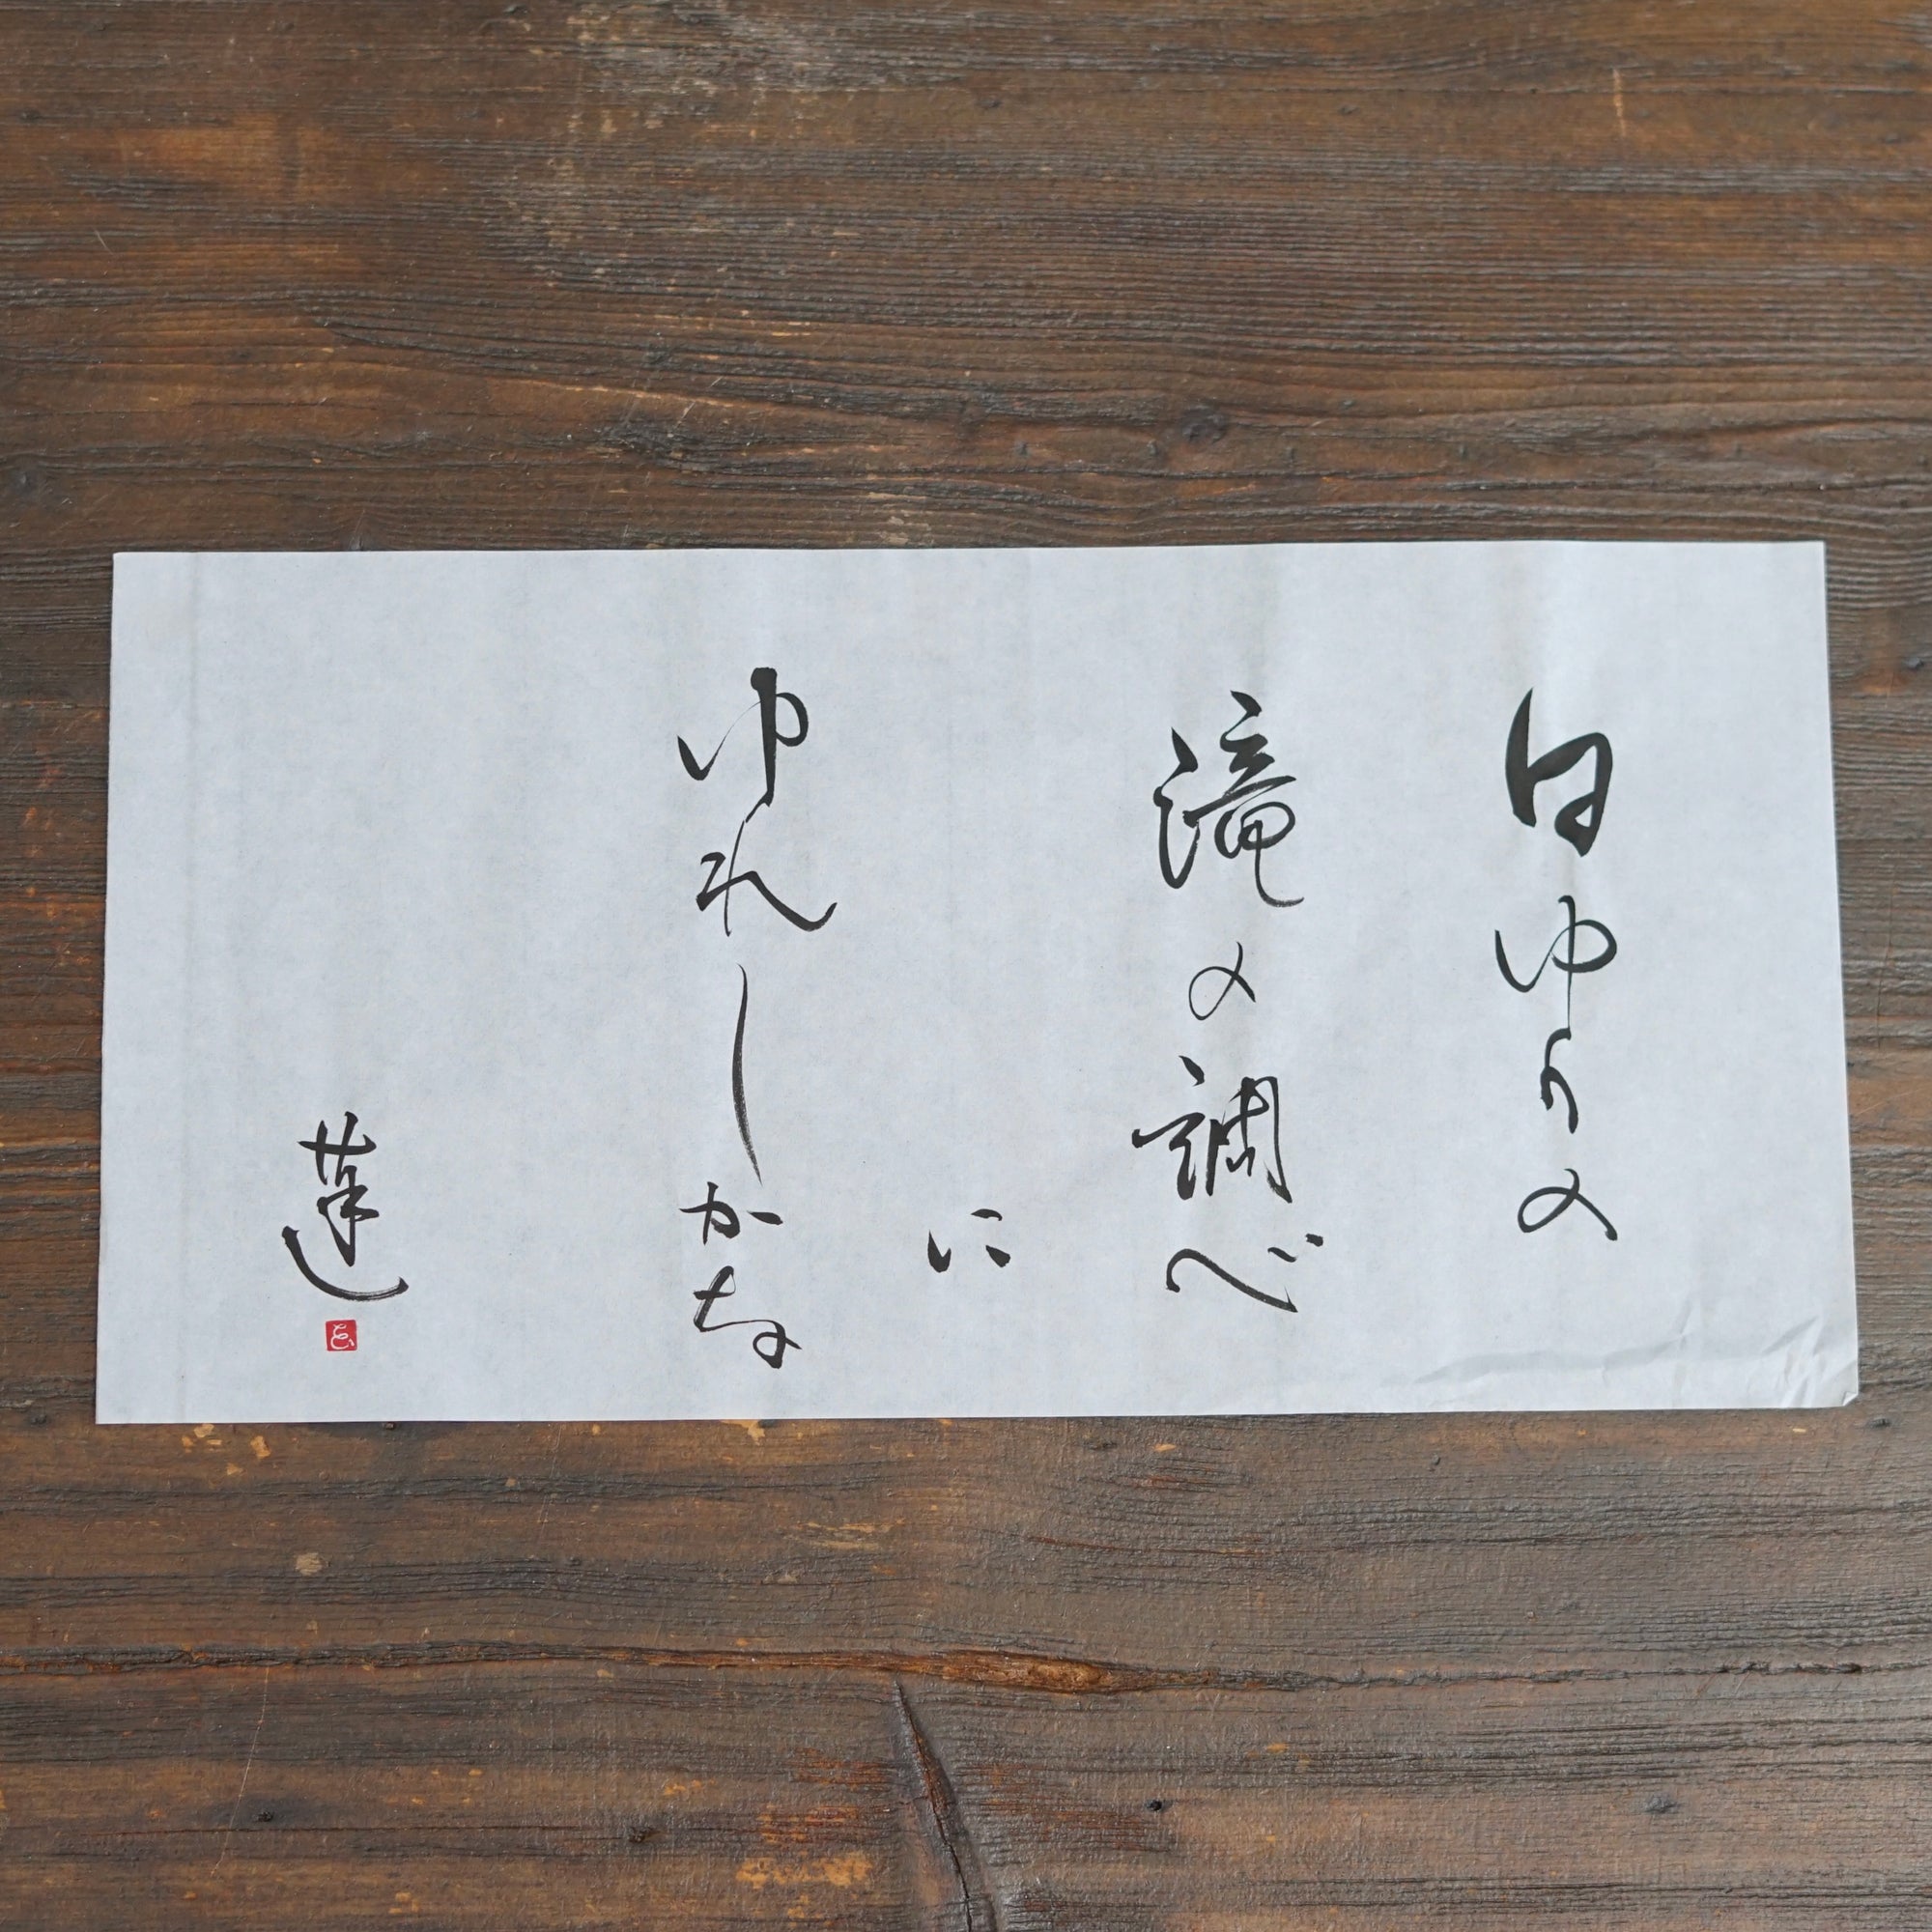 白ゆりの
滝の調べ
に
ゆれしかな
蓮